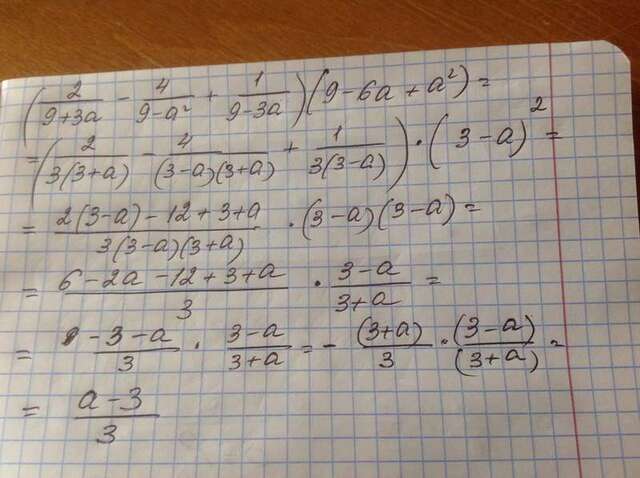 (2/(9+3a) - 4/(9-a²) + 1/(9-3a))(9-6a+a²)=
=(2/(3(3+a)) - 4/((3-a)(3+a)) + 1/(3(3-a)))·(3-a)²=
= (2(3-a)-12+3+a)/(3(3-a)(3+a)) · (3-a)(3-a)=
= (6-2a-12+3+a)/3 · (3-a)/(3+a) =
= (-3-a)/3 · (3-a)/(3+a) = - (3+a)/3 · (3-a)/(3+a) =
= (a-3)/3